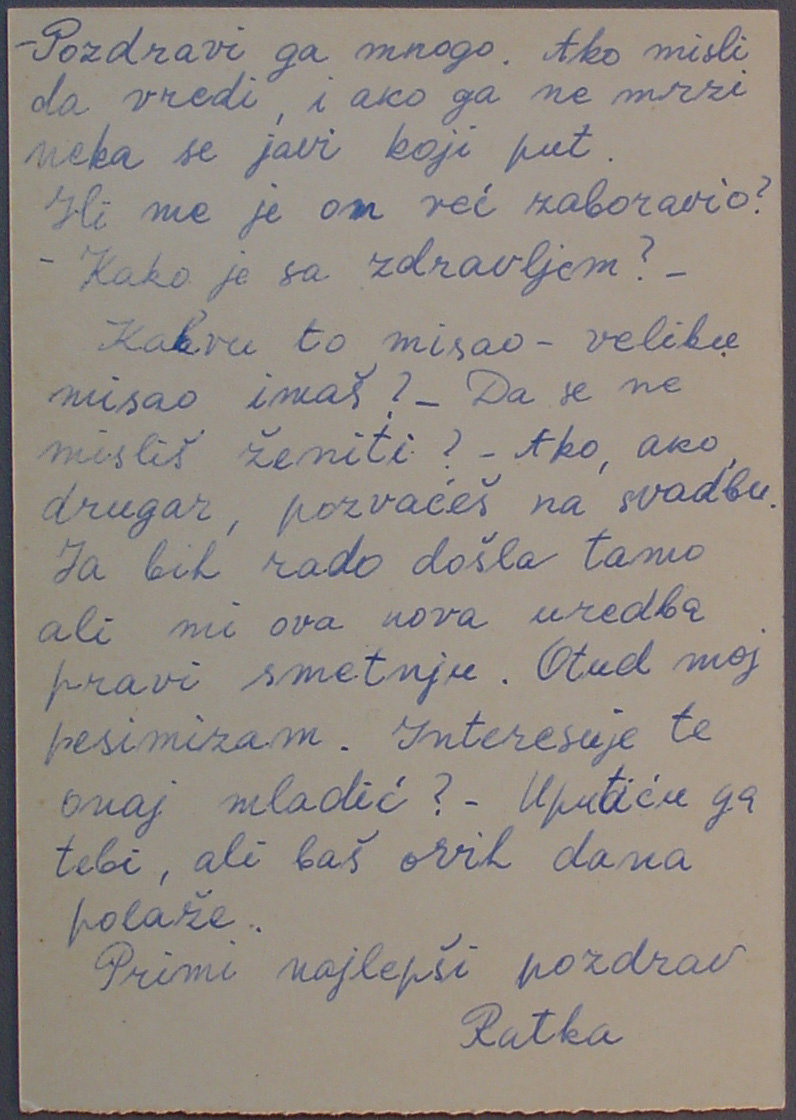 -Pozdravi ga mnogo. Ako misli
da vredi, i ako ga ne mrzi
neka se javi koji put.
Ili me je on već zaboravio?
- Kako je sa zdravljem? -
Kakvu to misao - veliku
misao imaš? - Da se ne
misliš ženiti? - Ako, ako,
drugar, pozvaćeš na svadbu.
Ja bih rado došla tamo
ali mi ova nova uredba
pravi smetnju. Otud moj
pesimizam. Interesuje te
onaj mladić? - Uputiću ga
tebi, ali baš ovih dana
polaže.
Primi najlepši pozdrav
Ratka